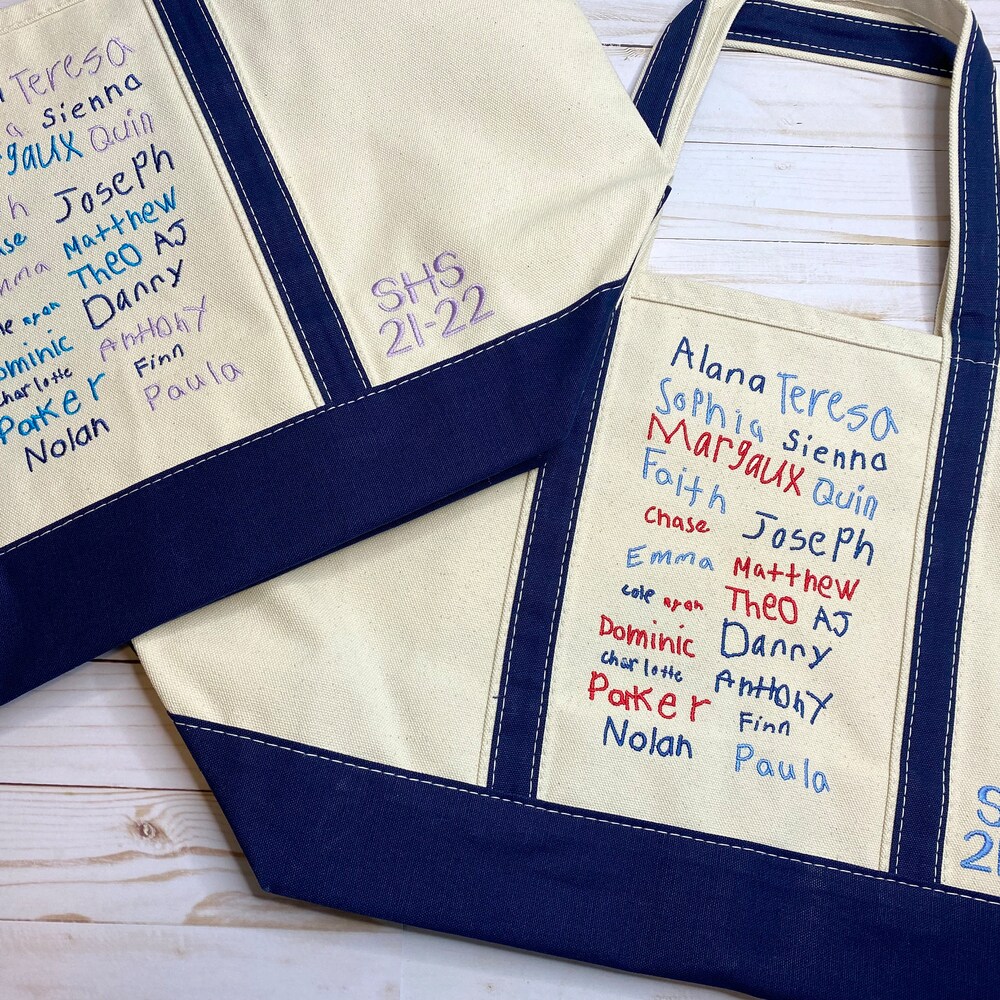 Teresa
a sienna
rgaux Quin
h Joseph
ase Matthew
mma Theo AJ
le ryan Danny
ominic AnthOny
charlotte Finn
Parker Paula
Nolan
SHS
21-22
Alana Teresa
Sophia sienna
Margaux Quin
Faith Joseph
chase Matthew
Emma Theo AJ
cole ryan Danny
Dominic AntHOnY
charlotte Finn
Parker Paula
Nolan
S
21